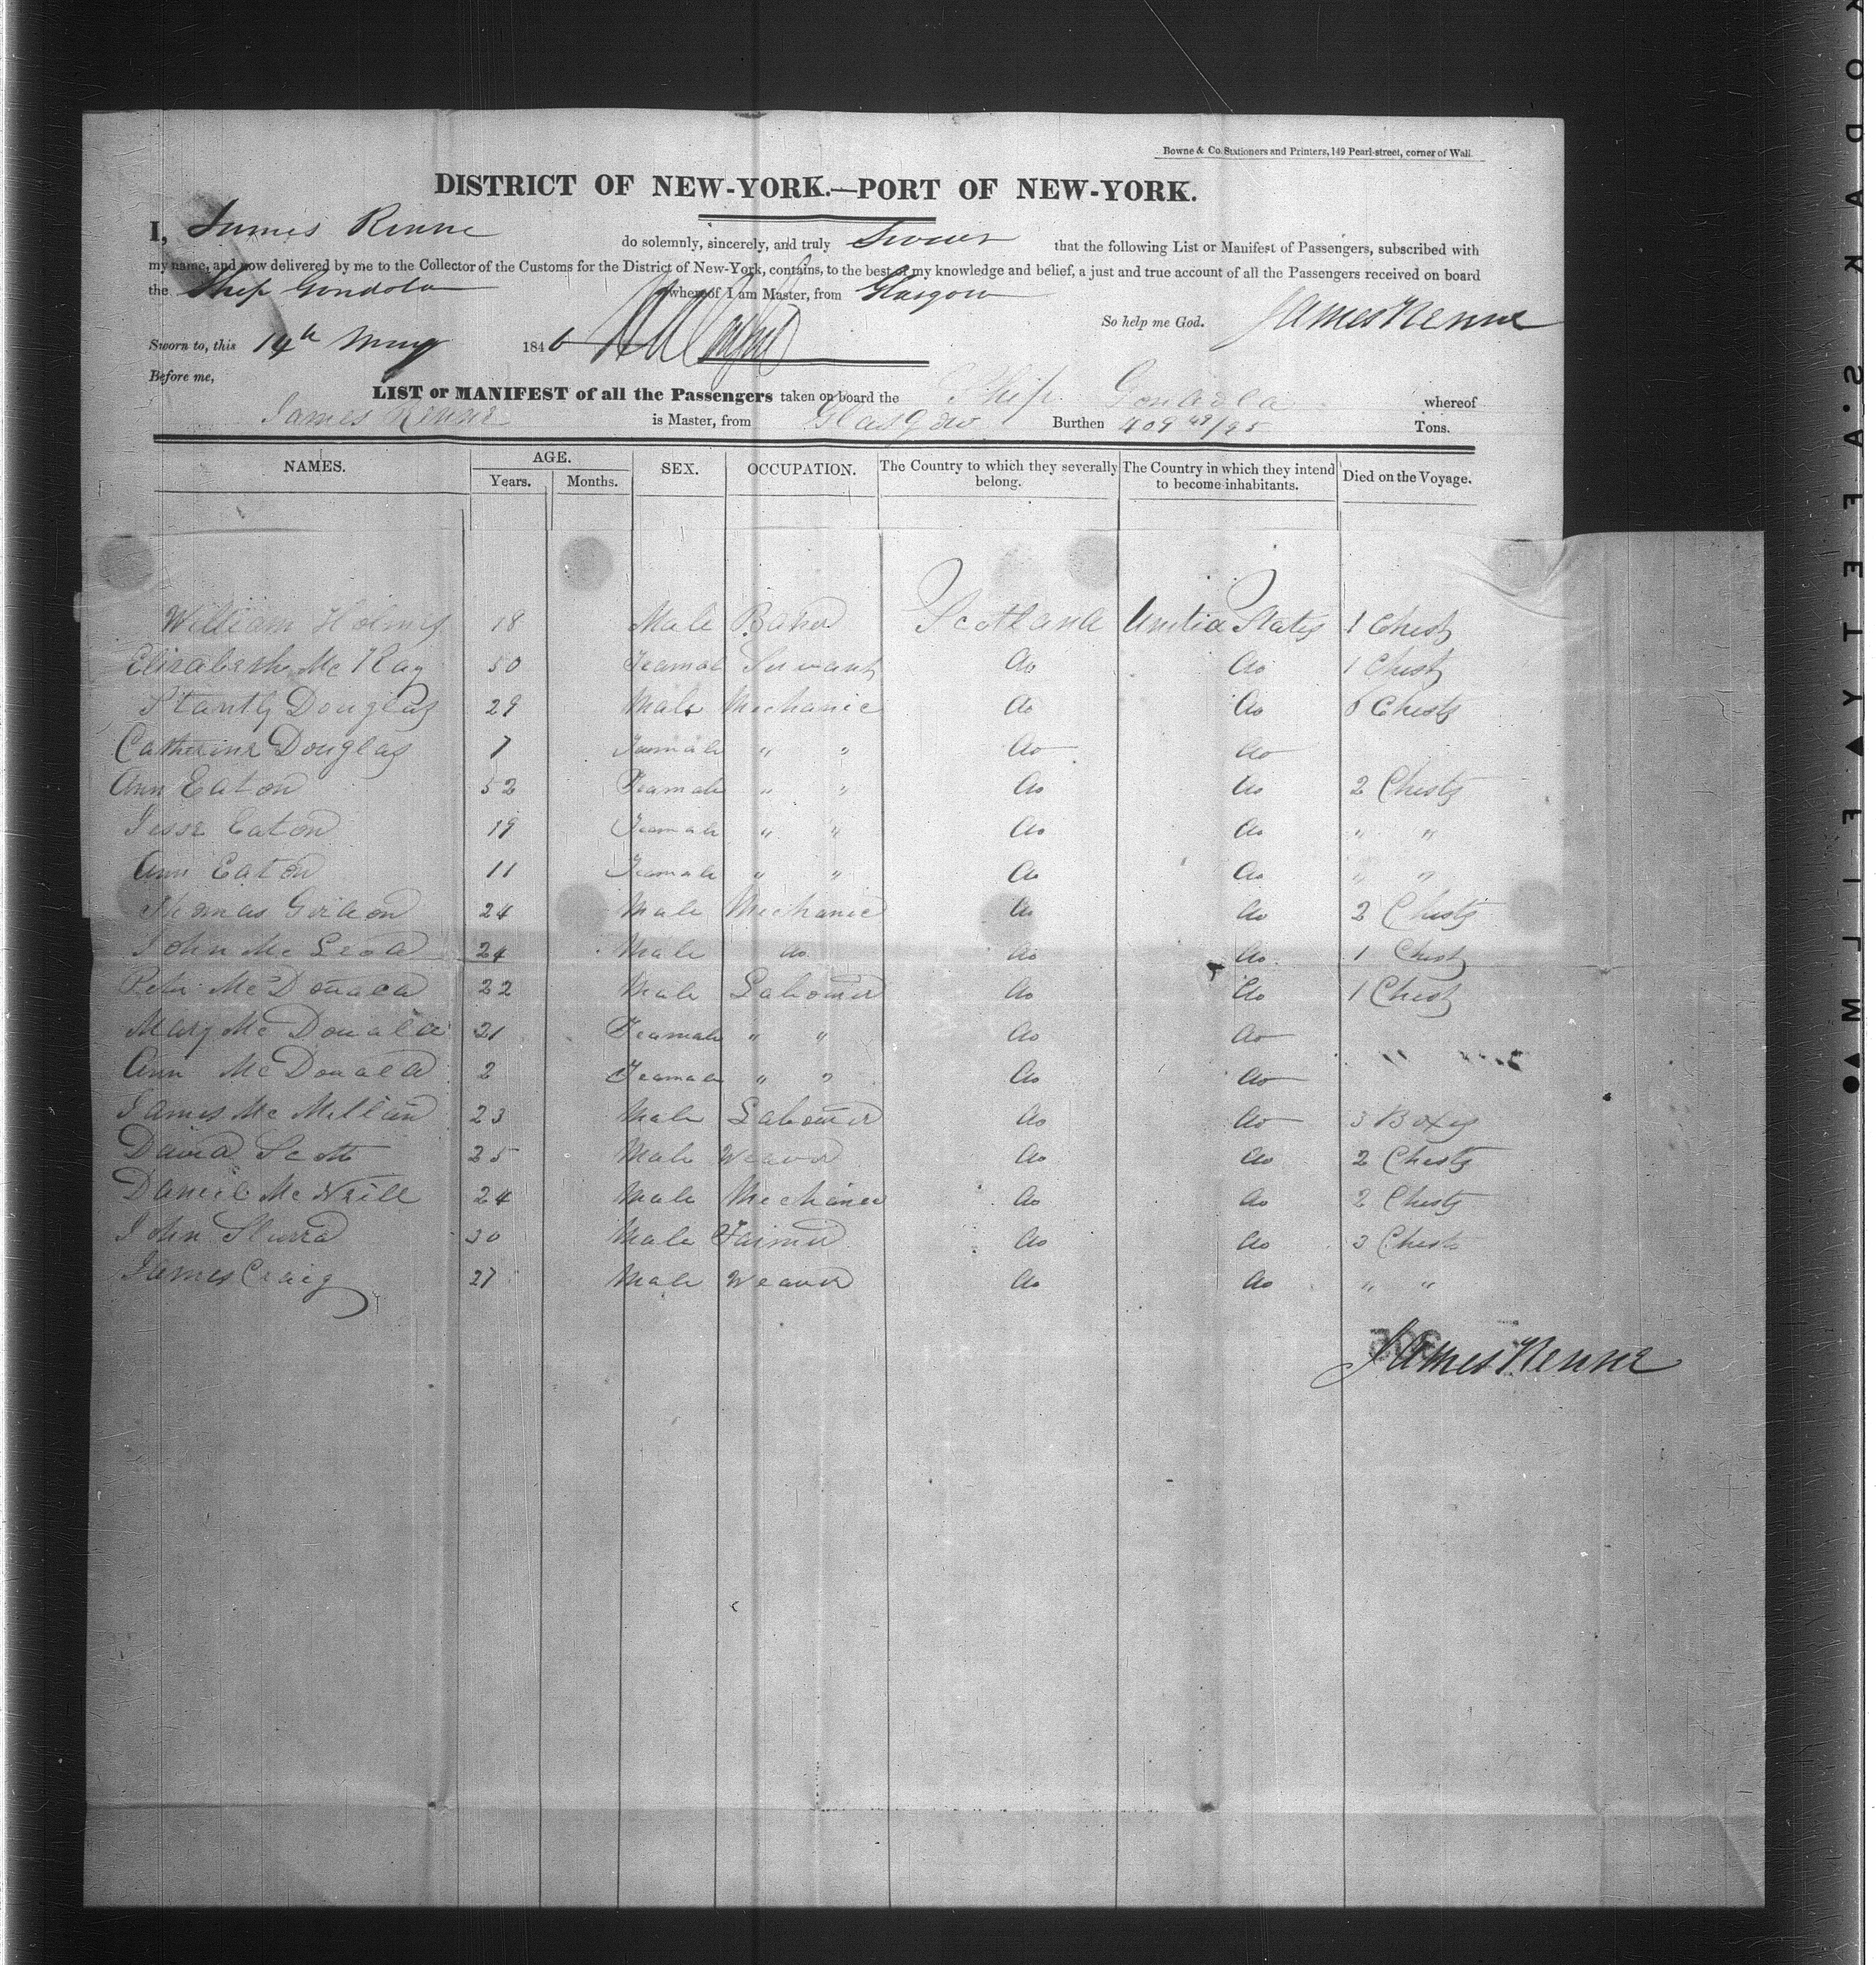 Bowne & Co. Stationers and Printers, 149 Pearl-street, corner of Wall.
DISTRICT OF NEW-YORK.—PORT OF NEW-YORK.
I, James Renne do solemnly, sincerely, and truly Swear that the following List or Manifest of Passengers, subscribed with
my name, and now delivered by me to the Collector of the Customs for the District of New-York, contains, to the best of my knowledge and belief, a just and true account of all the Passengers received on board
the Ship Gondola whereof I am Master, from Glasgow
So help me God. James Renne
Sworn to, this 14th May 1846
Before me,
LIST or MANIFEST of all the Passengers taken on board the Ship Gondola whereof
James Renne is Master, from Glasgow Burthen 409 48/95 Tons.
NAMES. AGE. SEX. OCCUPATION. The Country to which they severally belong. The Country in which they intend to become inhabitants. Died on the Voyage.
Years. Months.
William Holmes 18 Male Baker Scotland United States 1 Chest
Elizabeth Mc Kay 50 Feamal Servant do do 1 Chest
Douglas 29 Male Mechanic do do Chests
Catherine Douglas 7 Feamale " " do do
Ann Eaton 52 Feamale " " do do 2 Chests
Jesse Eaton 19 Feamale " " do do " "
Ann Eaton 11 Feamale " " do do " "
Thomas 24 Male Mechanic do do 2 Chests
John Mc Leod 24 Male do do do 1 Chest
Peter McDonald 22 Male Labourer do do 1 Chest
Mary Mc Donald 21 Feamale " " do do
Ann McDonald 2 Feamale " " do do
James Mc Millan 23 Male Labourer do do 3 Boxes
David Scott 25 Male Weaver do do 2 Chests
Daniel Mc Neill 24 Male Mechanic do do 2 Chests
John 30 Male Farmer do do 3 Chests
James Craig 27 Male Weaver do do " "
James Renne